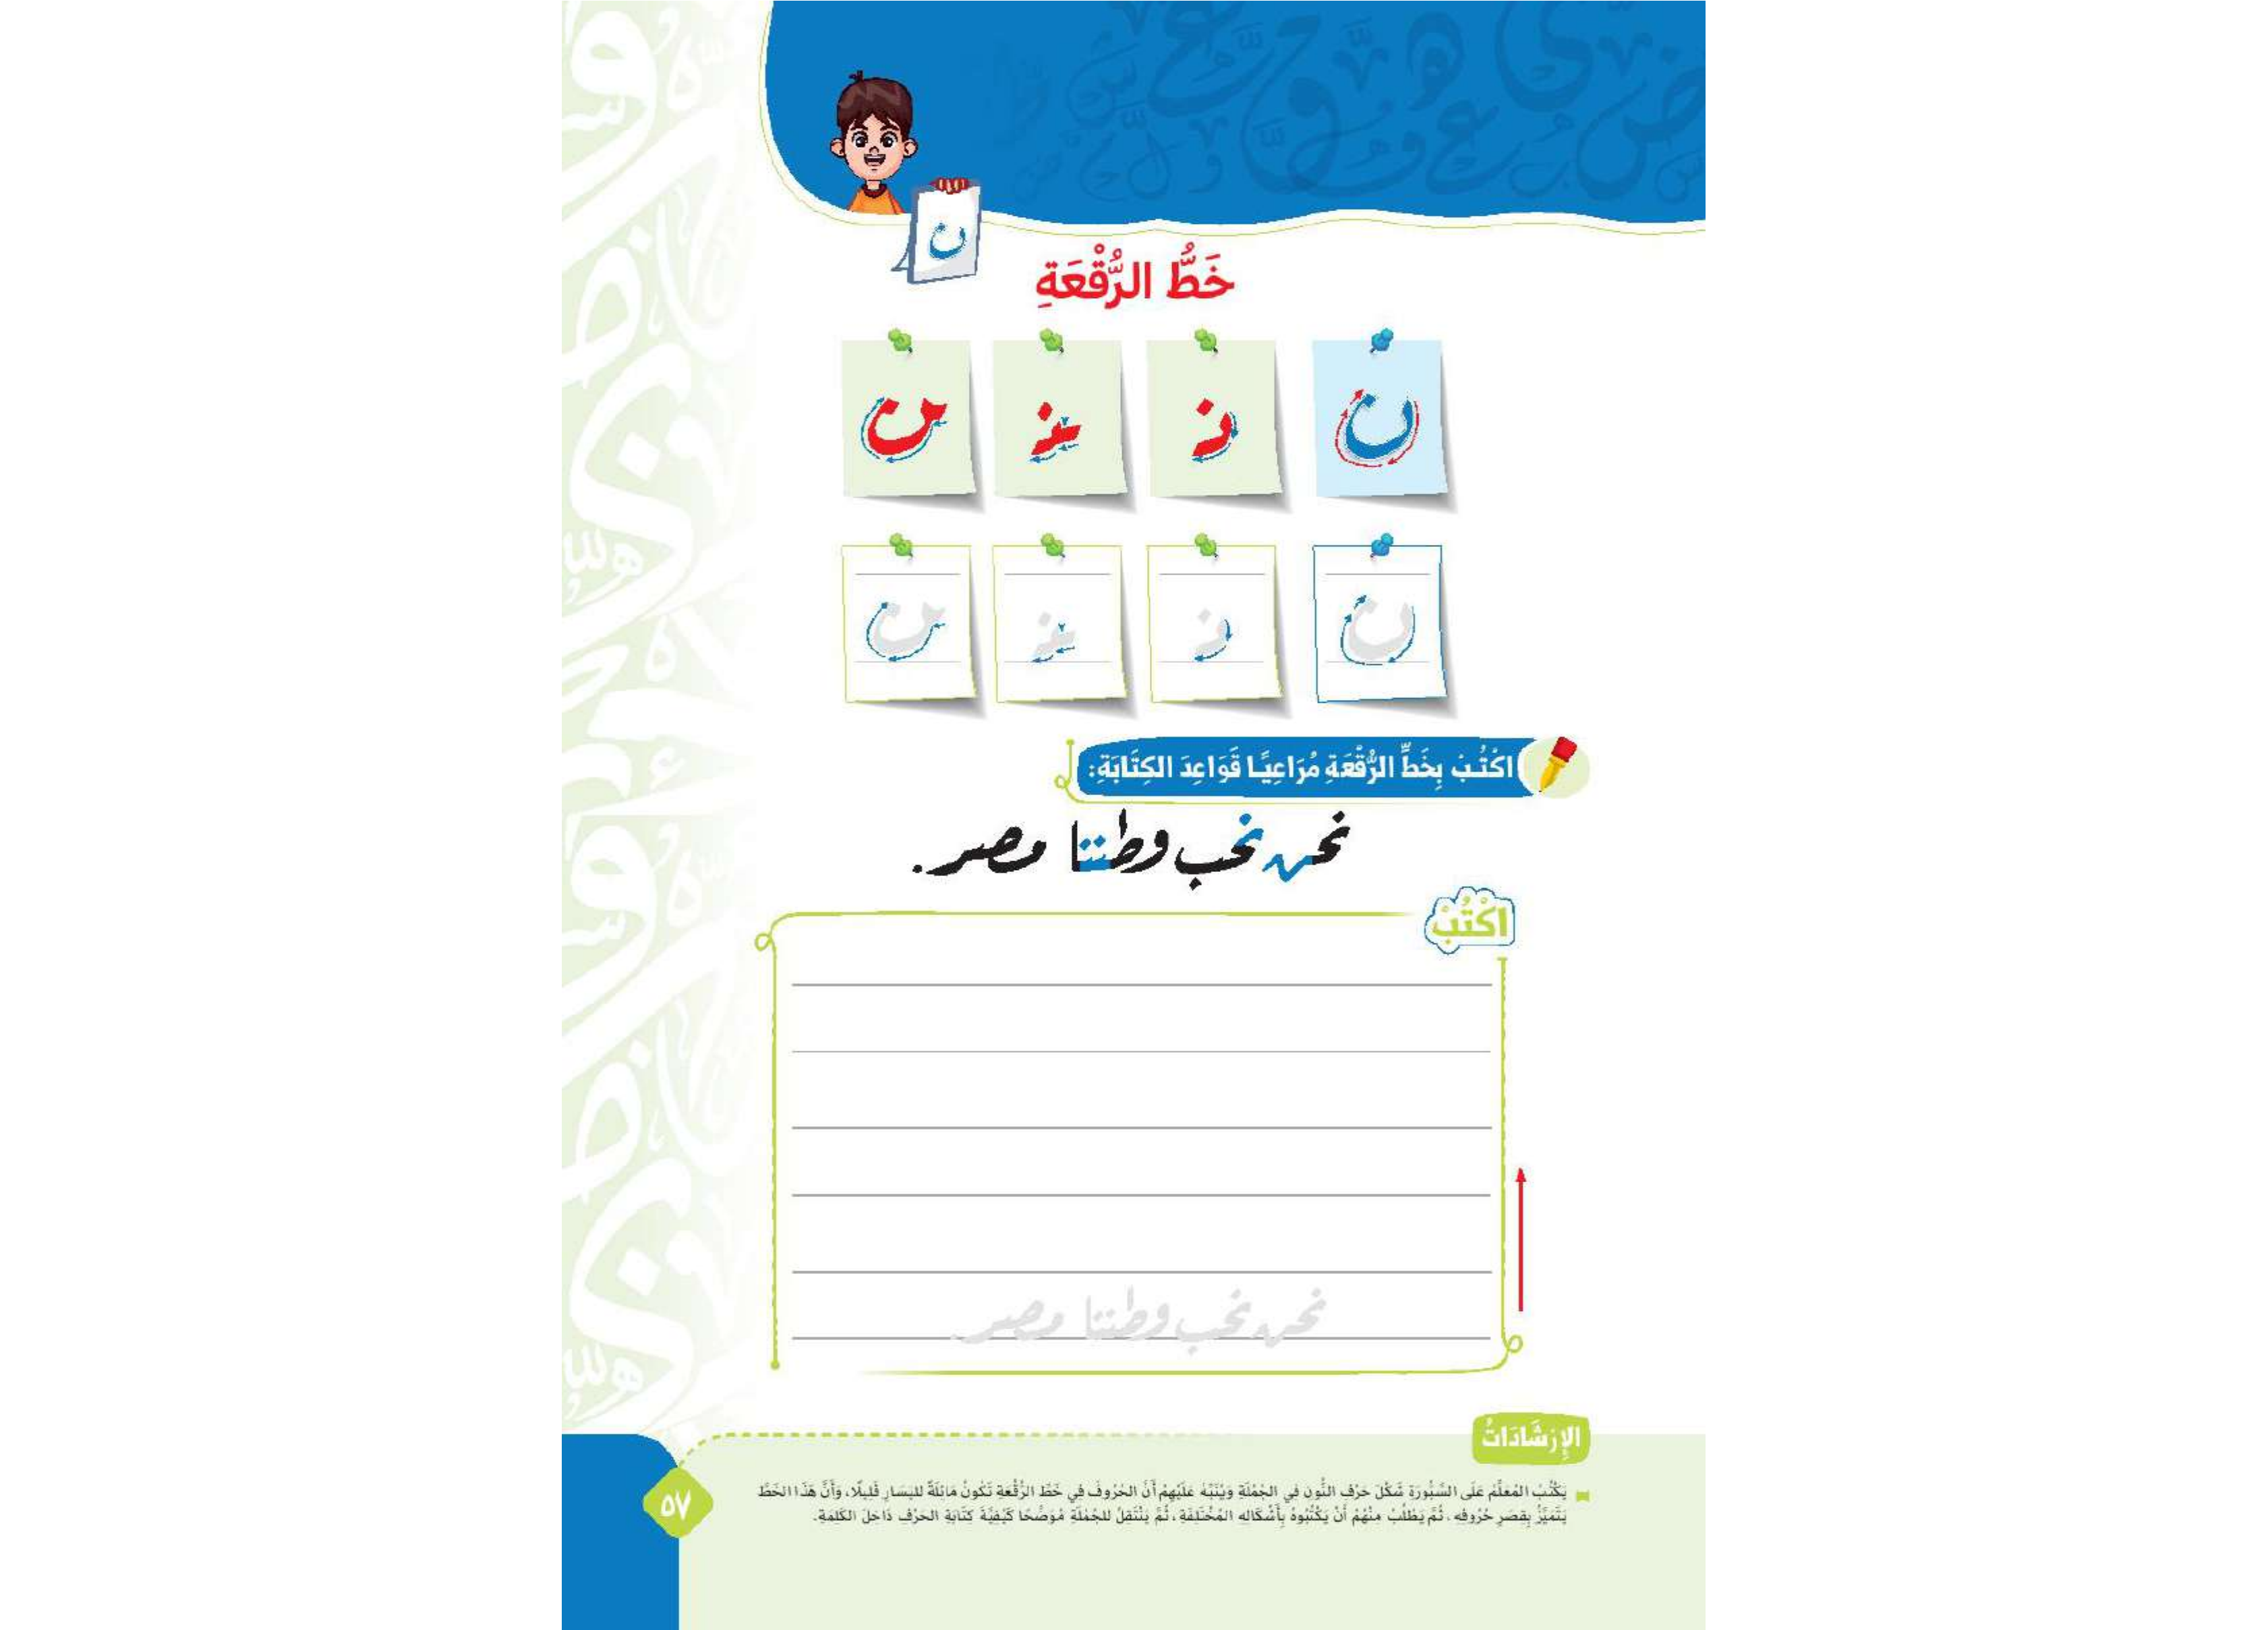 ن
خَطُّ الرُّقْعَةِ
ن نـ ـنـ ـن
ن نـ ـنـ ـن
اكْتُبْ بِخَطِّ الرُّقْعَةِ مُرَاعِيًا قَوَاعِدَ الكِتَابَةِ:
نحن نحب وطننا مصر.
اكْتُبْ
نحن نحب وطننا مصر.
الإِرْشَادَاتُ
يَكْتُبُ المُعَلِّمُ عَلَى السَّبُّورَةِ شَكْلَ حَرْفِ النُّونِ فِي الجُمْلَةِ وَيُنَبِّهُ عَلَيْهِمْ أَنَّ الحُرُوفَ فِي خَطِّ الرُّقْعَةِ تَكُونُ مَائِلَةً لليَسَارِ قَلِيلًا، وَأَنَّ هَذَا الخَطَّ
يَتَمَيَّزُ بِقِصَرِ حُرُوفِهِ. ثُمَّ يَطْلُبُ مِنْهُمْ أَنْ يَكْتُبُوهُ بِأَشْكَالِهِ المُخْتَلِفَةِ، ثُمَّ يَنْتَقِلُ للجُمْلَةِ مُوَضِّحًا كَيْفِيَّةَ كِتَابَةِ الحَرْفِ دَاخِلَ الكَلِمَةِ.
٥٧